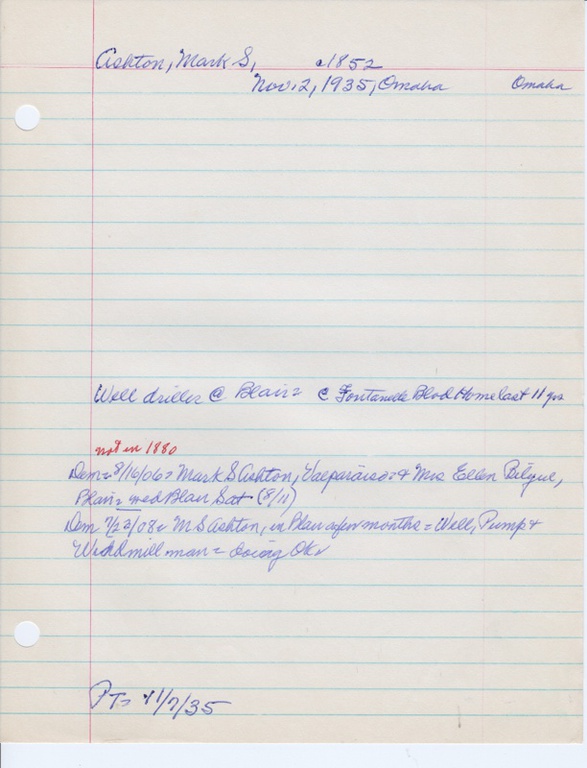 Ashton, Mark S, c1852
Nov. 2, 1935, Omaha Omaha
Well driller @ Blair = @ Fontanelle Blvd Home last 11 yrs
not in 1880
Dem = 8/16/06 = Mark S Ashton, Valparaiso & Mrs Ellen Bilque,
Blair = med Blair Sat (8/11)
Dem 7/23/08 = M S Ashton, in Blair a few months = Well, Pump &
Windmill man = doing OK
PT = 11/7/35